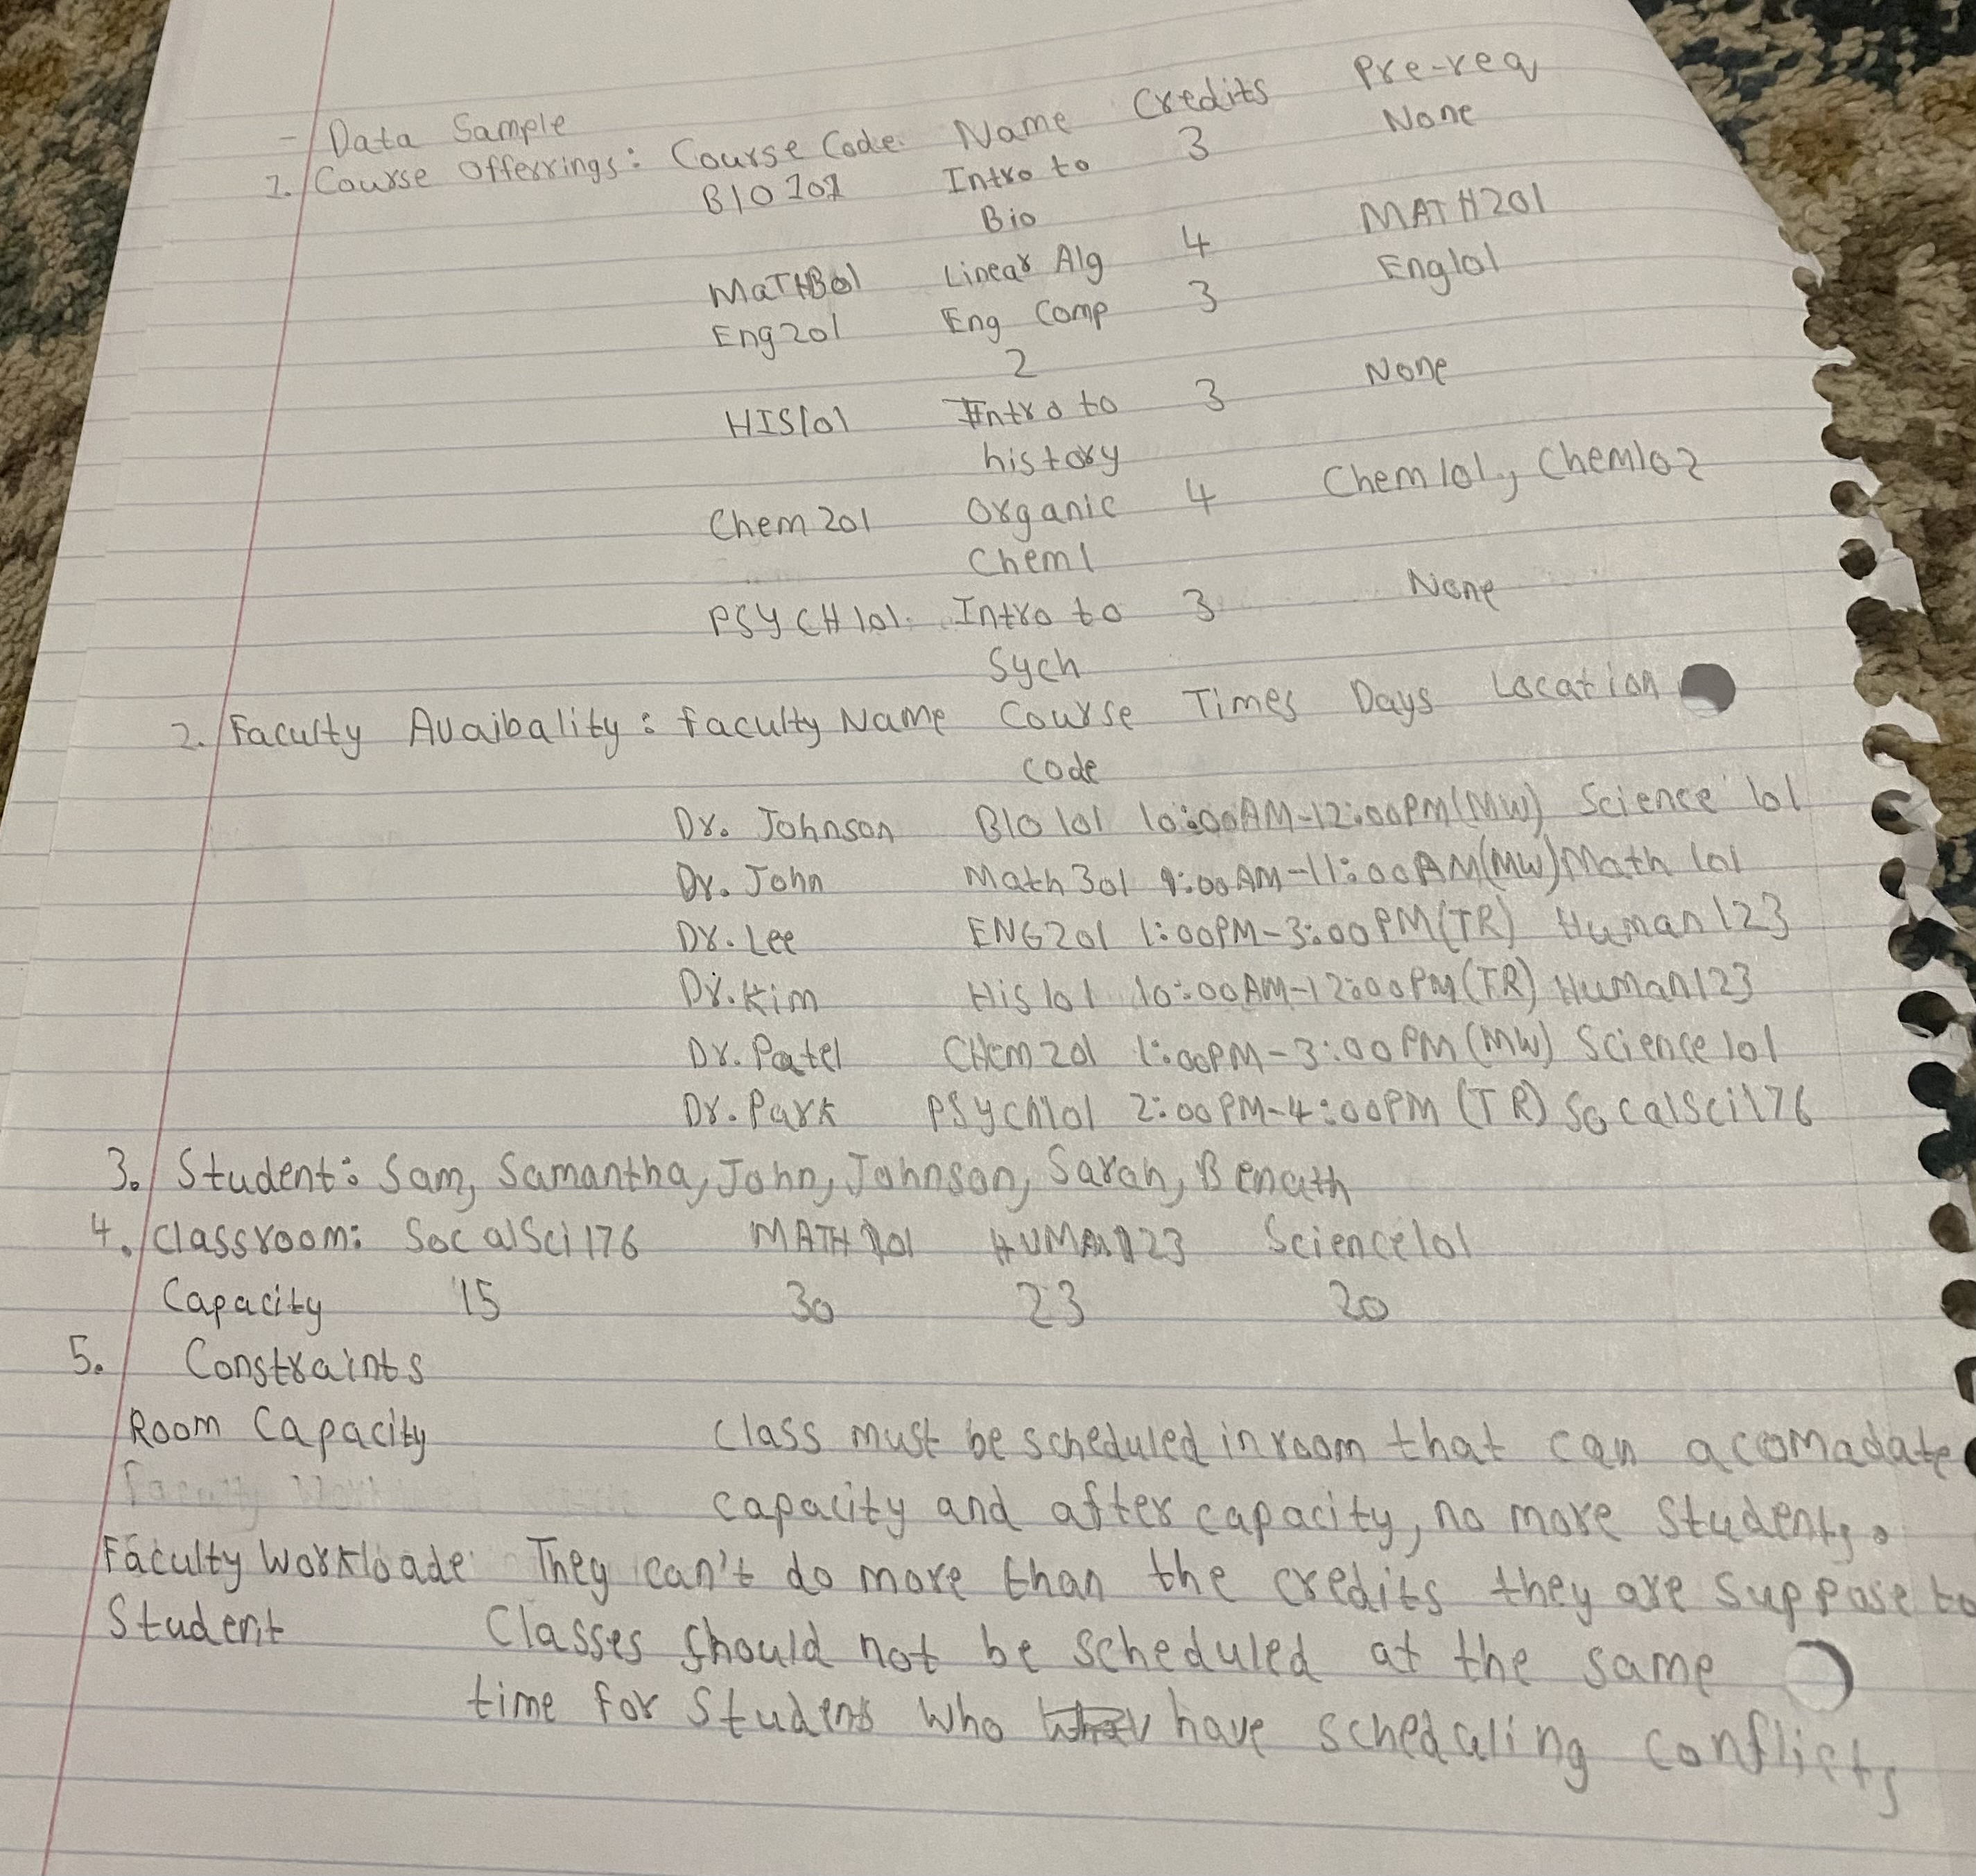 - Data Sample
1. Course Offerrings: Course Code Name Credits Pre-req
BIO 101 Intro to 3 None
Bio
MaTH301 Linear Alg 4 MATH201
Eng201 Eng Comp 3 Eng101
2
HIS101 Intro to 3 None
history
Chem201 Organic 4 Chem101, Chem102
Chem1
PSYCH101 Intro to 3 None
Sych
2. Faculty Avaibality: faculty Name Course Times Days Location
code
Dr. Johnson BIO 101 10:00AM-12:00PM(MW) Science 101
Dr. John Math 301 9:00AM-11:00AM(MW) Math 101
Dr. Lee ENG201 1:00PM-3:00PM(TR) Human 123
Dr. Kim His 101 10:00AM-12:00PM(TR) Human123
Dr. Patel CHem 201 1:00PM-3:00PM(MW) Science 101
Dr. Park PSych101 2:00PM-4:00PM (TR) SocalSci176
3. Student: Sam, Samantha, John, Johnson, Sarah, Benath
4. Classroom: SocalSci176 MATH101 HUMAN123 Science101
Capacity 15 30 23 20
5. Constraints
Room Capacity Class must be scheduled in room that can acomadate
capacity and after capacity, no more students.
Faculty Workloade They can't do more than the credits they are suppose to
Student Classes should not be scheduled at the same
time for students who have scheduling conflicts